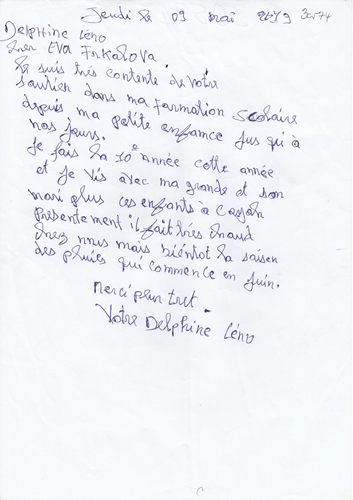 Jeudi le 09 mai 2019 30574
Delphine Léno
cher EVA Frkalova
Je suis très contente de votre
soutien dans ma formation scolaire
depuis ma petite enfamce jus qu'à
nos jours.
Je fais la 10e année cette année
et je vis avec ma grande et son
mari plus ces enfants à
présentement il fait très chaud
chez nous mais bientôt la saison
des pluies qui commence en juin.
merci pour tout.
Votre Delphine Léno